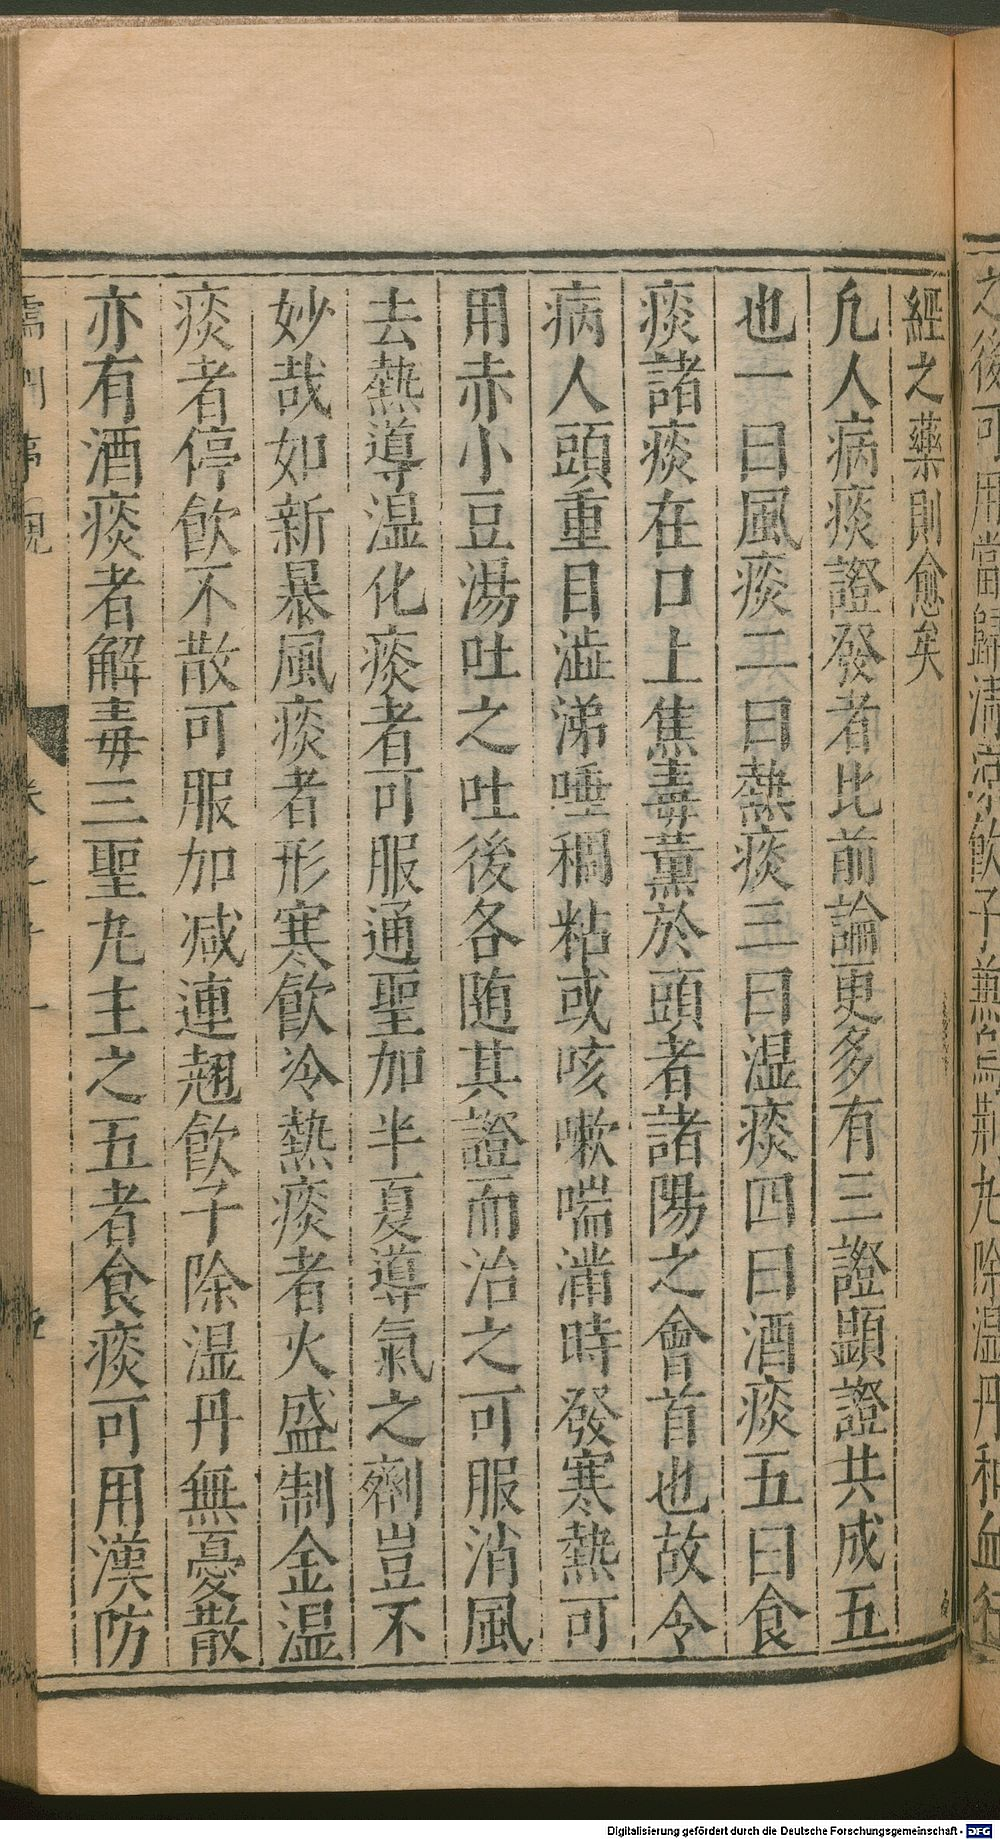 經之藥則愈矣
凢人病痰證發者比前論更多有三證顯證共成五
也一曰風痰二曰熱痰三曰湿痰四曰酒痰五曰食
痰諸痰在口上焦毒薰於頭者諸陽之會首也故令
病人頭重目澁涕唾稠粘或咳嗽喘滿時發寒熱可
用赤小豆湯吐之吐後各随其證而治之可服消風
去熱導湿化痰者可服通聖加半夏導氣之劑豈不
妙哉如新暴風痰者形寒飲冷熱痰者火盛制金湿
痰者停飲不散可服加减連翹飲子除湿丹無憂散
亦有酒痰者解毒三聖丸主之五者食痰可用漢防
Digitalisierung gefördert durch die Deutsche Forschungsgemeinschaft - DFG